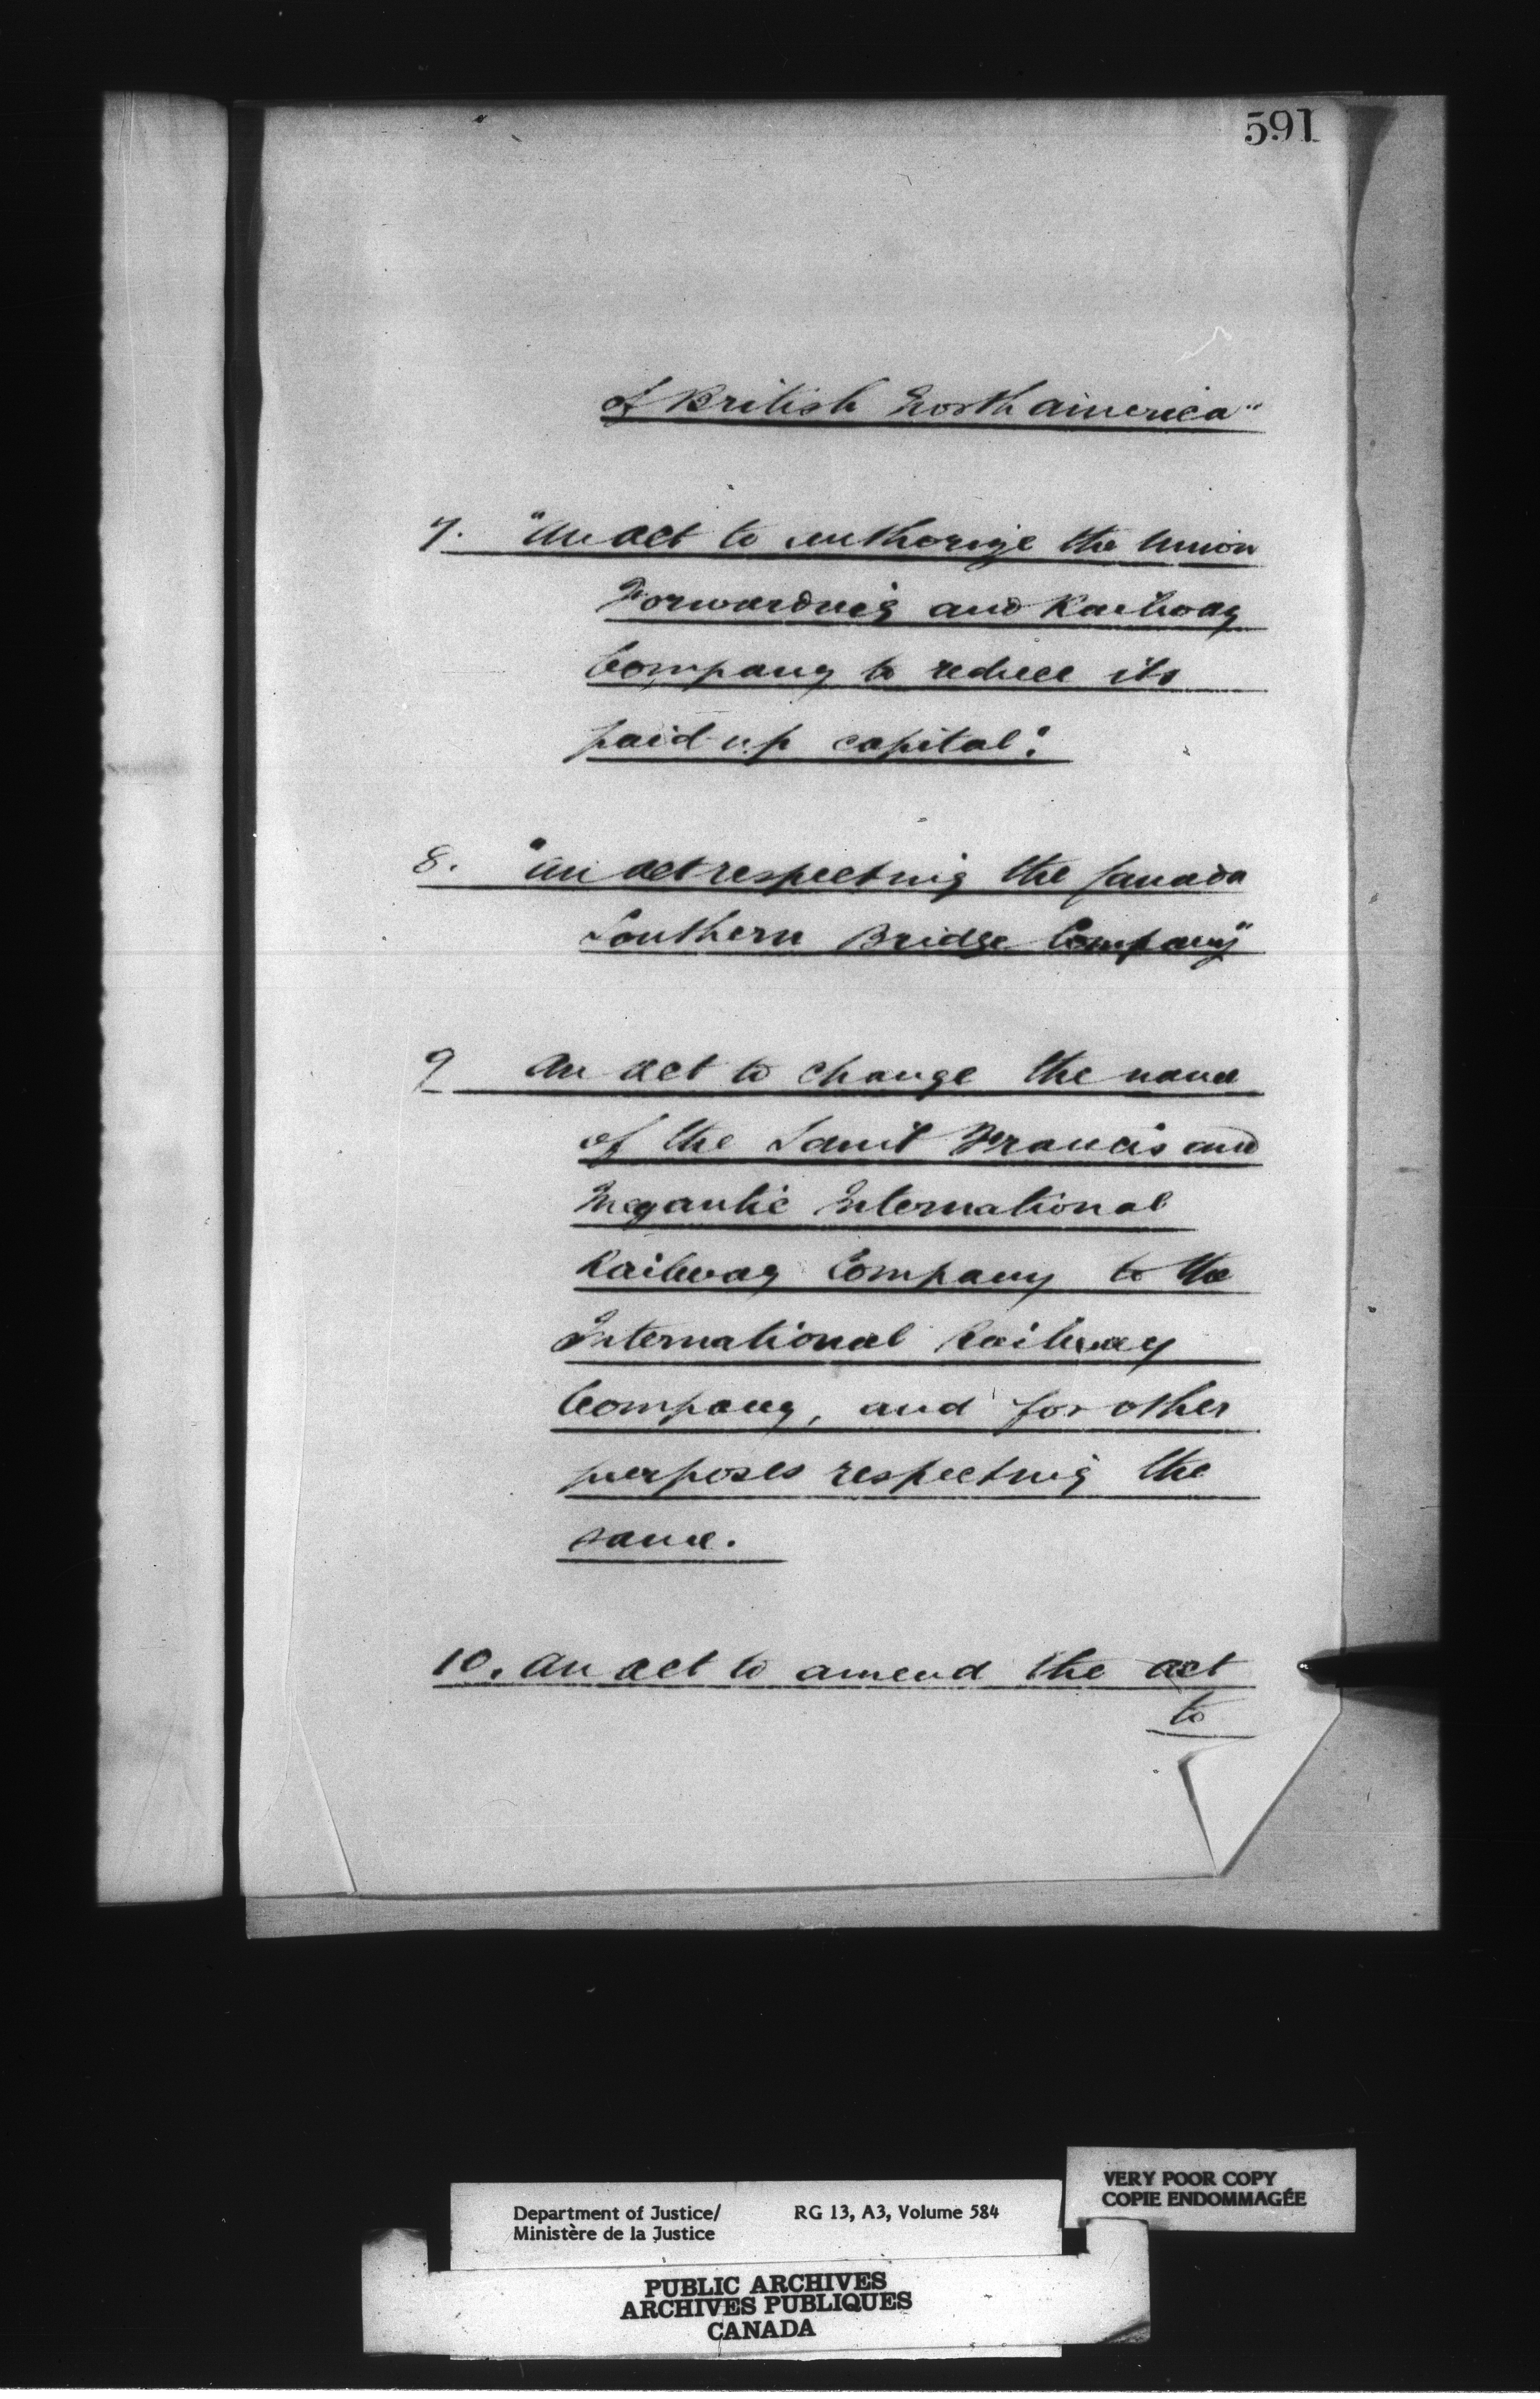 591
of British North America"
7. "An act to authorize the Union
Forwarding and Railway
Company to reduce its
paid up capital".
8. "An act respecting the Canada
Southern Bridge Company"
9 An act to change the name
of the Saint Francis and
Megantic International
Railway Company to the
International Railway
Company, and for other
purposes respecting the
same.
10. An act to amend the act
to
VERY POOR COPY
COPIE ENDOMMAGÉE
Department of Justice/ RG 13, A3, Volume 584
Ministère de la Justice
PUBLIC ARCHIVES
ARCHIVES PUBLIQUES
CANADA